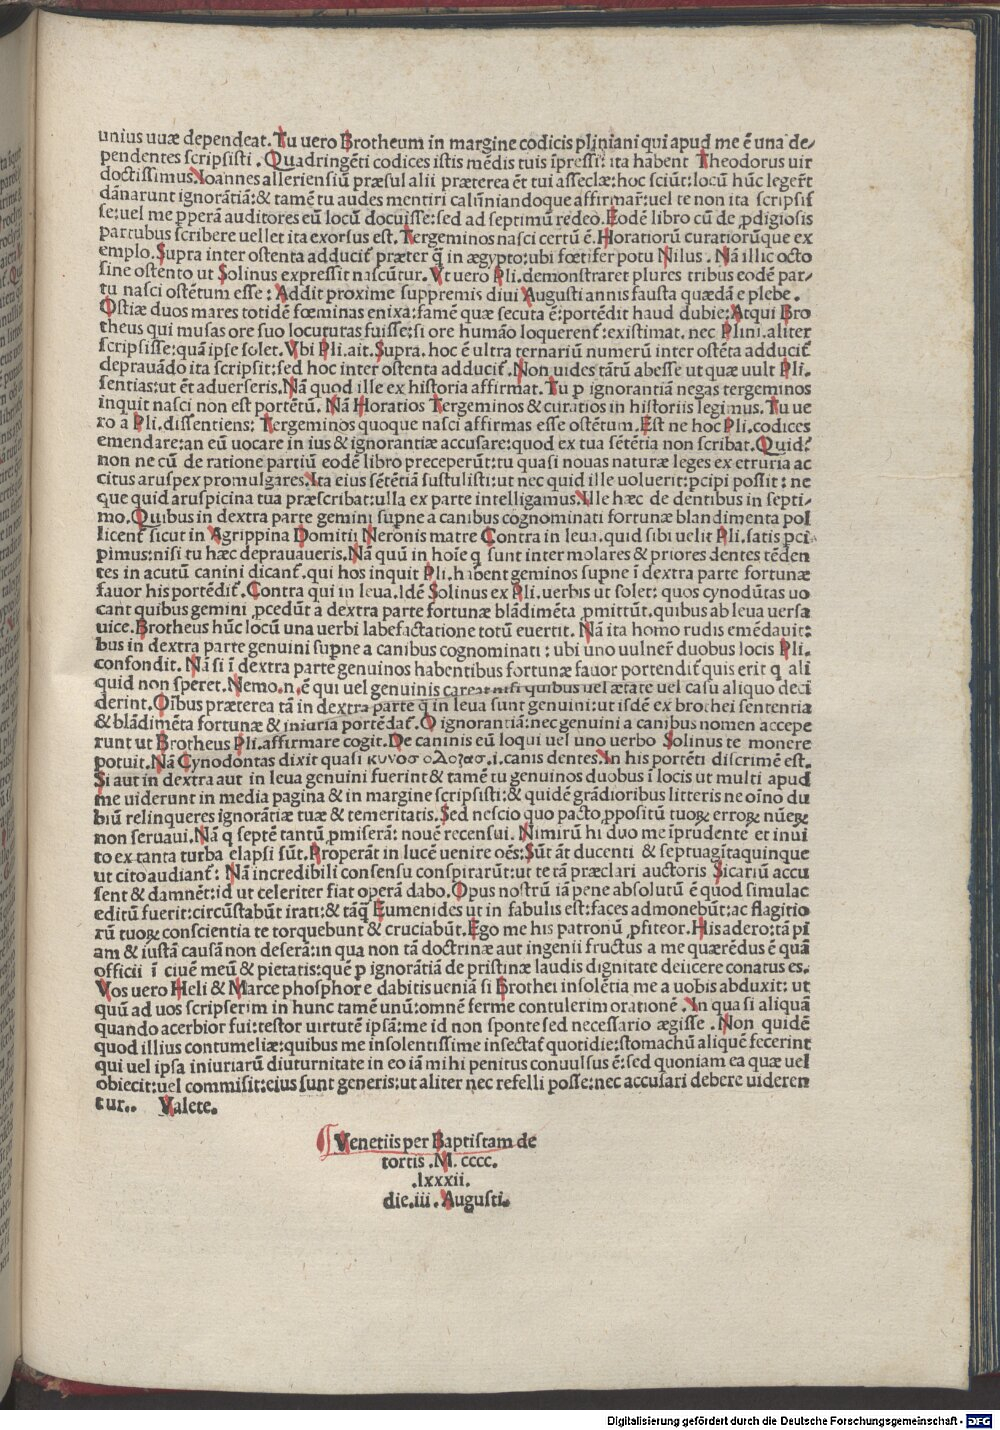 unius uuæ dependeat. Tu uero Brotheum in margine codicis pliniani qui apud me ē una de⸗
pendentes scripsisti . Quadringēti codices istis mēdis tuis īpressi: ita habent Theodorus uir
doctissimus. Ioannes alleriensiū præsul alii præterea ēt tui asseclæ: hoc sciūt: locū hūc legerūt
dānarunt ignorātiā: & tamē tu audes mentiri calūniandoque affirmar̄: uel te non ita scripsis
se: uel me ꝑperā auditores eū locū docuisse: sed ad septimū redeo. Eodē libro cū de ꝓdigiosis
partubus scribere uellet ita exorsus est. Tergeminos nasci certū ē. Horatiorū curatiorūque ex
emplo. Supra inter ostenta adducit᷑ præter ꝗ̄ in ægypto: ubi fœtifer potu Nilus . Nā illic octo
sine ostento ut Solinus expressit nascūtur. Vt uero Pli. demonstraret plures tribus eodē par⸗
tu nasci ostētum esse : Addit proxime suppremis diui Augusti annis fausta quædā e plebe .
Ostiæ duos mares totidē fœminas enixa: famē quæ secuta ē: portēdit haud dubie: Atqui Bro
theus qui musas ore suo locuturas fuisse: si ore humāo loquerent᷑: existimat. nec Plini. aliter
scripsisse: quā ipse solet. Vbi Pli. ait. Supra. hoc ē ultra ternariū numerū inter ostēta adducit᷑
deprauādo ita scripsit: sed hoc inter ostenta adducit᷑. Non uides tātū abesse ut quæ uult Pli.
sentias: ut ēt aduerseris. Nā quod ille ex historia affirmat. Tu ꝑ ignorantiā negas tergeminos
inquit nasci non est portētū. Nā Horatios Tergeminos & curatios in historiis legimus. Tu ue
ro a Pli. dissentiens: Tergeminos quoque nasci affirmas esse ostētum. Est ne hoc Pli. codices
emendare: an eū uocare in ius & ignorantiæ accusare: quod ex tua sētētia non scribat. Quid?
non ne cū de ratione partiū eodē libro preceperūt: tu quasi nouas naturæ leges ex etruria ac
citus aruspex promulgares. Ita eius sētētiā sustulisti: ut nec quid ille uoluerit: ꝑcipi possit : ne
que quid aruspicina tua præscribat: ulla ex parte intelligamus. Ille hæc de dentibus in septi⸗
mo. Quibus in dextra parte gemini supꝛne a canibus cognominati fortunæ blandimenta pol
licent᷑ sicut in Agrippina Domitii Neronis matre Contra in leua. quid sibi uelit Pli. satis ꝑci
pimus: nisi tu hæc deprauaueris. Nā quū in hoīe ꝗ sunt inter molares & priores dentes tēden
tes in acutū canini dicant᷑. qui hos inquit Pli. habent geminos supꝛne ī dextra parte fortunæ
fauor his portēdit᷑. Contra qui in leua. Idē Solinus ex Pli. uerbis ut solet: quos cynodūtas uo
cant quibus gemini ꝓcedūt a dextra parte fortunæ blādimēta ꝓmittūt. quibus ab leua uersa
uice. Brotheus hūc locū una uerbi labefactatione totū euertit. Nā ita homo rudis emēdauit:
bus in dextra parte genuini supꝛne a canibus cognominati : ubi uno uulner̄ duobus locis Pli.
confondit. Nā si ī dextra parte genuinos habentibus fortunæ fauor portendit᷑ quis erit ꝗ ali
quid non speret. Nemo. n. ē qui uel genuinis careat nisi quibus uel ætate uel casu aliquo deci
derint. Oībus præterea tā in dextra parte ꝗ̄ in leua sunt genuini: ut isdē ex brothei sententia
& blādimēta fortunæ & iniuria portēdat᷑. O ignorantiā: nec genuini a canibus nomen accepe
runt ut Brotheus Pli. affirmare cogit. De caninis eū loqui uel uno uerbo Solinus te monere
potuit. Nā Cynodontas dixit quasi κυνοσ οδοντασ. i. canis dentes. In his portēti discrimē est.
Si aut in dextra aut in leua genuini fuerint & tamē tu genuinos duobus ī locis ut multi apud
me uiderunt in media pagina & in margine scripsisti: & quidē grādioribus litteris ne oīno du
biū relinqueres ignorātiæ tuæ & temeritatis. Sed nescio quo pacto ꝓpositū tuoꝝ erroꝝ nūeꝝ
non seruaui. Nā ꝗ septē tantū ꝓmiserā: nouē recensui. Nimirū hi duo me īprudente et inui
to ex tanta turba elapsi sūt. Properāt in lucē uenire oēs: Sūt āt ducenti & septuagītaquinque
ut cito audiant᷑: Nā incredibili consensu conspirarūt: ut te tā præclari auctoris Sicariū accu
sent & damnēt: id ut celeriter fiat operā dabo. Opus nostrū iā pene absolutū ē quod simulac
editū fuerit: circūstabūt irati: & tāꝗ̄ Eumenides ut in fabulis est: faces admonebūt: ac flagitio
rū tuoꝝ conscientia te torquebunt & cruciabūt. Ego me his patronū ꝓfiteor. His adero: tā pi
am & iustā causā non deserā: in qua non tā doctrinæ aut ingenii fructus a me quærēdus ē quā
officii ī ciuē meū & pietatis: quē ꝑ ignorātiā de pristinæ laudis dignitate deiicere conatus es.
Vos uero Heli & Marce phosphore dabitis ueniā si Brothei insolētia me a uobis abduxit: ut
quū ad uos scripserim in hunc tamē unū: omnē ferme contulerim orationē . In qua si aliquā
quando acerbior fui: testor uirtutē ipsā: me id non sponte sed necessario ægisse . Non quidē
quod illius contumeliæ: quibus me insolentissime insectat᷑ quotidie: stomachū aliquē fecerint
qui uel ipsa iniuriarū diuturnitate in eo iā mihi penitus conuulsus ē: sed quoniam ea quæ uel
obiecit: uel commisit: eius sunt generis: ut aliter nec refelli posse: nec accusari debere uideren
tur.. Valete.
Venetiis per Baptistam de
tortis . M. cccc.
.lxxxii.
die. iii . Augusti.
Digitalisierung gefördert durch die Deutsche Forschungsgemeinschaft - DFG